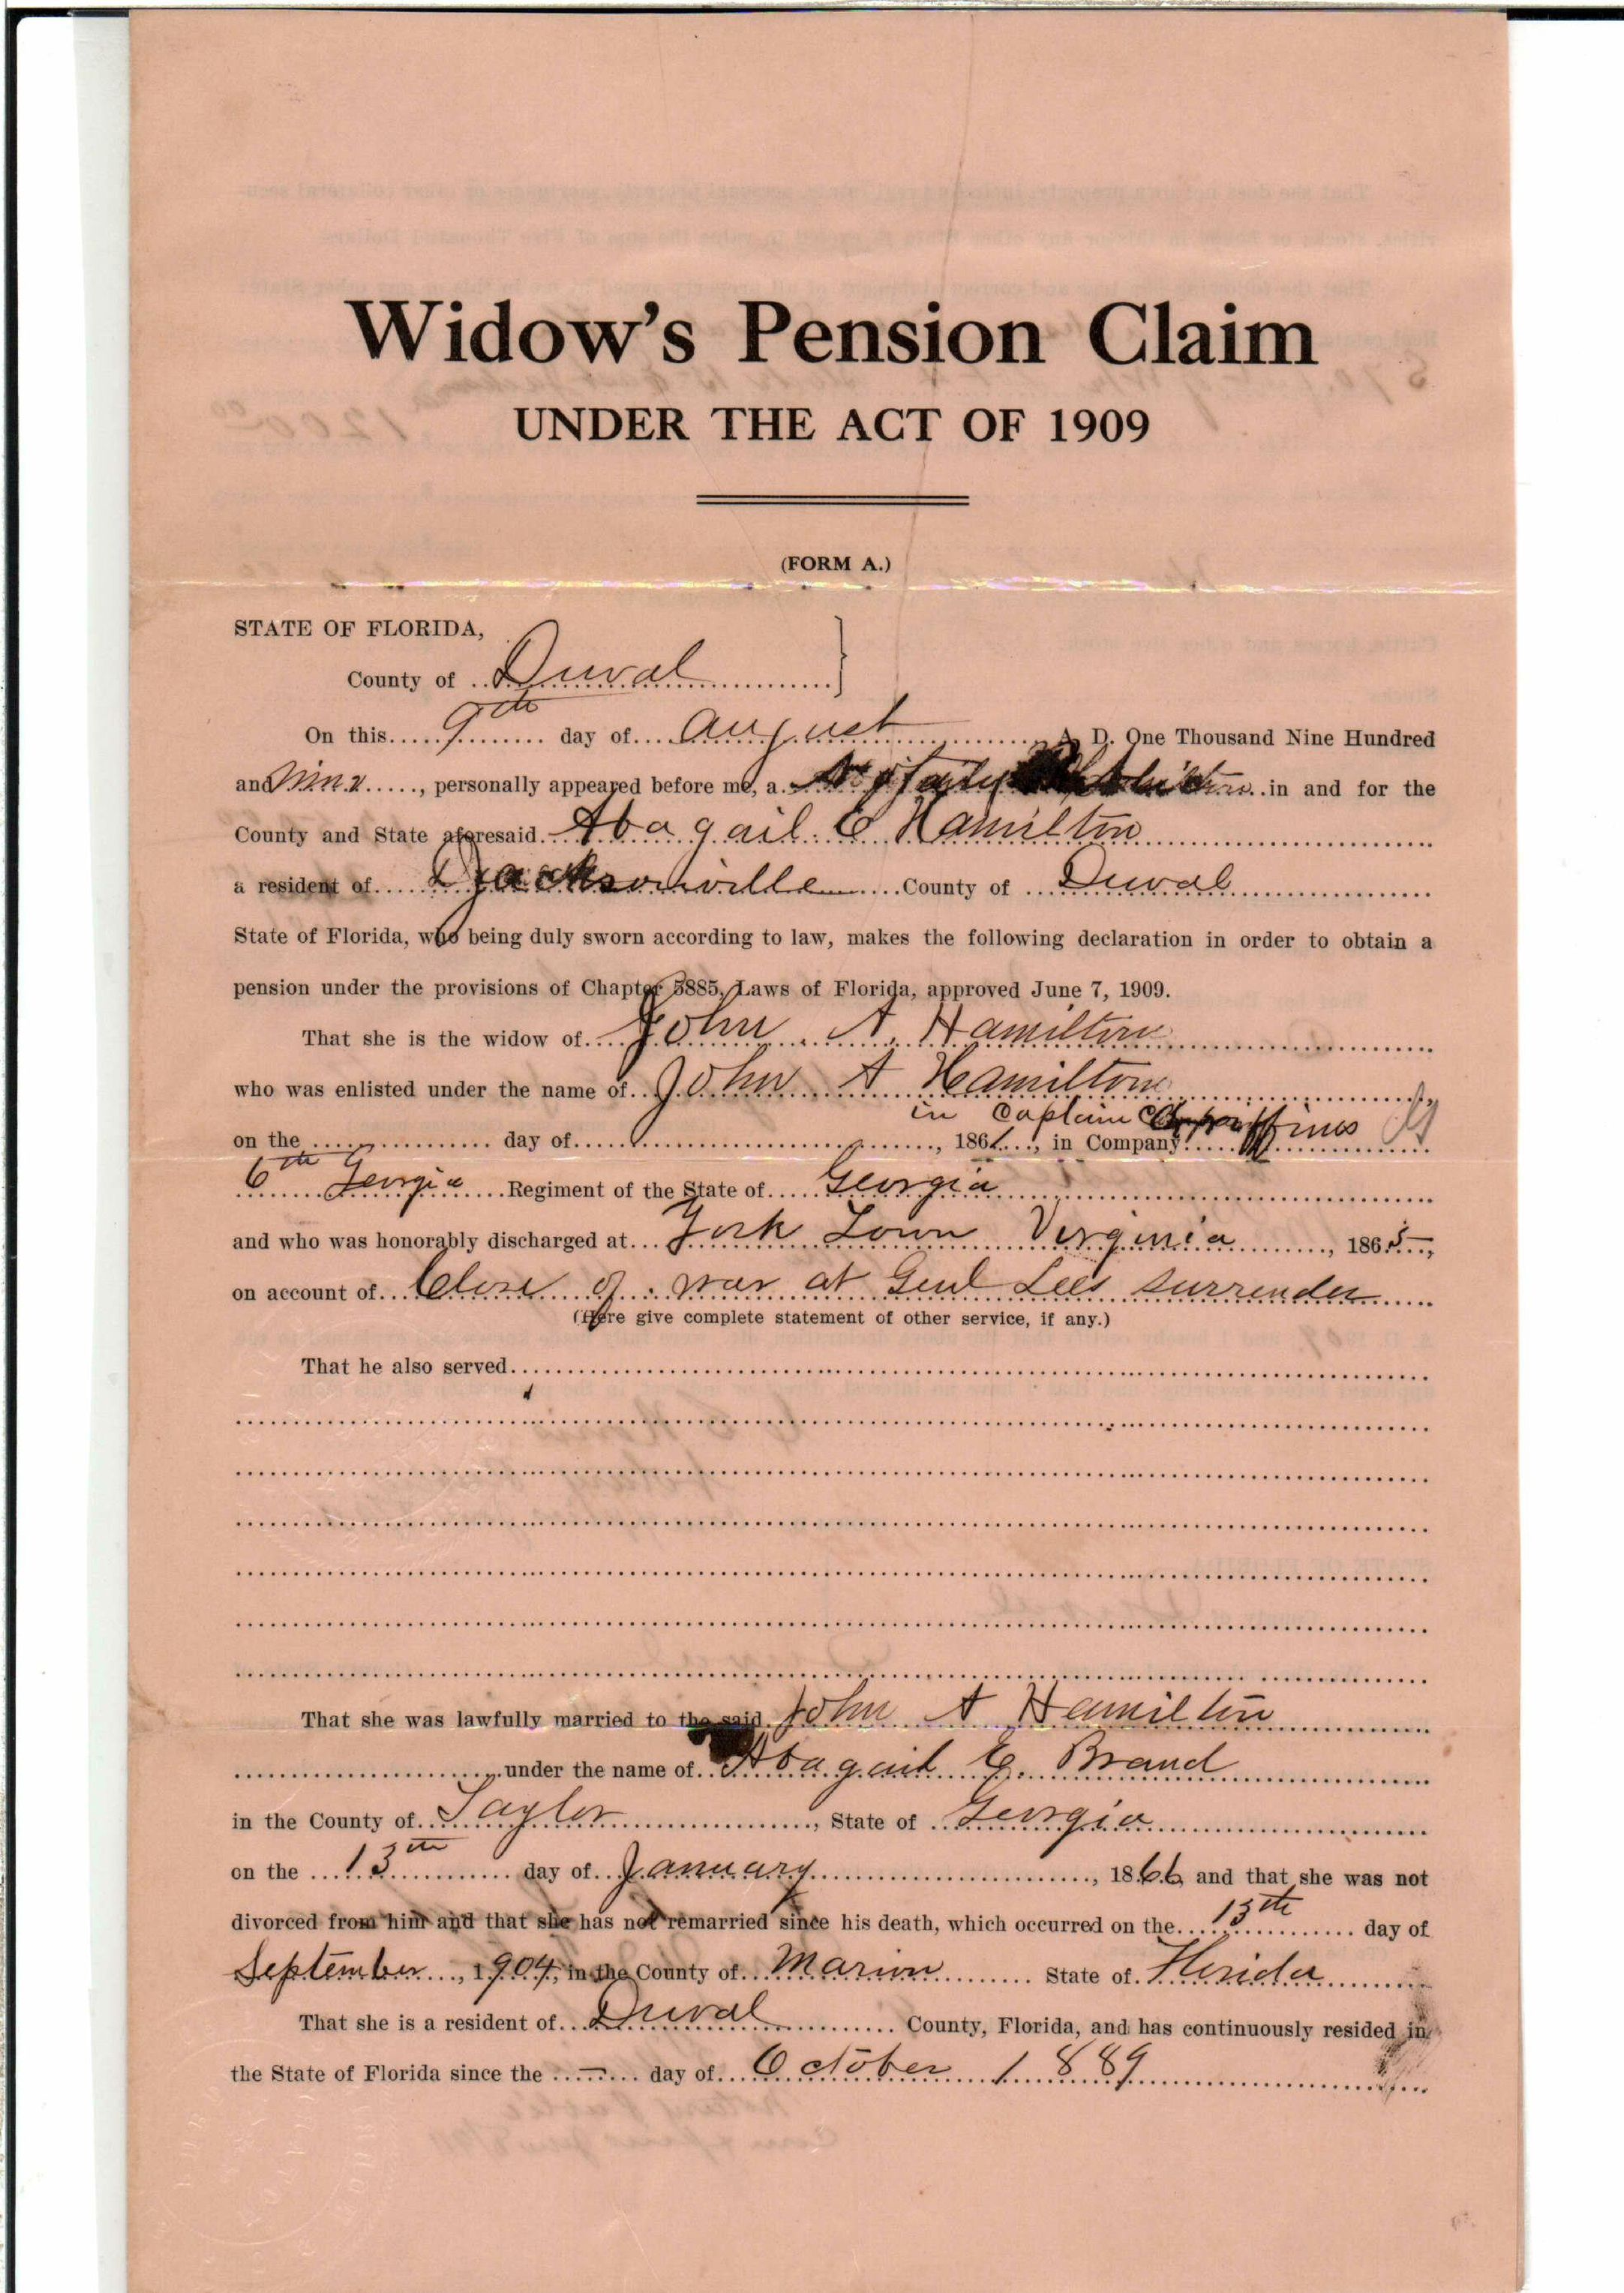 Widow's Pension Claim
UNDER THE ACT OF 1909
(FORM A.)
STATE OF FLORIDA,
County of Duval
On this 9th day of August A. D. One Thousand Nine Hundred
and Nine, personally appeared before me, a Notary in and for the
County and State aforesaid Abagail E Hamilton
a resident of Jacksonville County of Duval
State of Florida, who being duly sworn according to law, makes the following declaration in order to obtain a
pension under the provisions of Chapter 5885, Laws of Florida, approved June 7, 1909.
That she is the widow of John A Hamilton
who was enlisted under the name of John A Hamilton
in Captain
on the day of , 1861, in Company G
6th Georgia Regiment of the State of Georgia
and who was honorably discharged at York Town Virginia, 1865,
on account of Close of war at Genl Lees surrender
(Here give complete statement of other service, if any.)
That he also served
That she was lawfully married to the said John A Hamilton
under the name of Abagail E. Brand
in the County of Taylor, State of Georgia
on the 13th day of January, 1866 and that she was not
divorced from him and that she has not remarried since his death, which occurred on the 13th day of
September, 1904, in the County of Marion State of Florida
That she is a resident of Duval County, Florida, and has continuously resided in
the State of Florida since the — day of October 1889